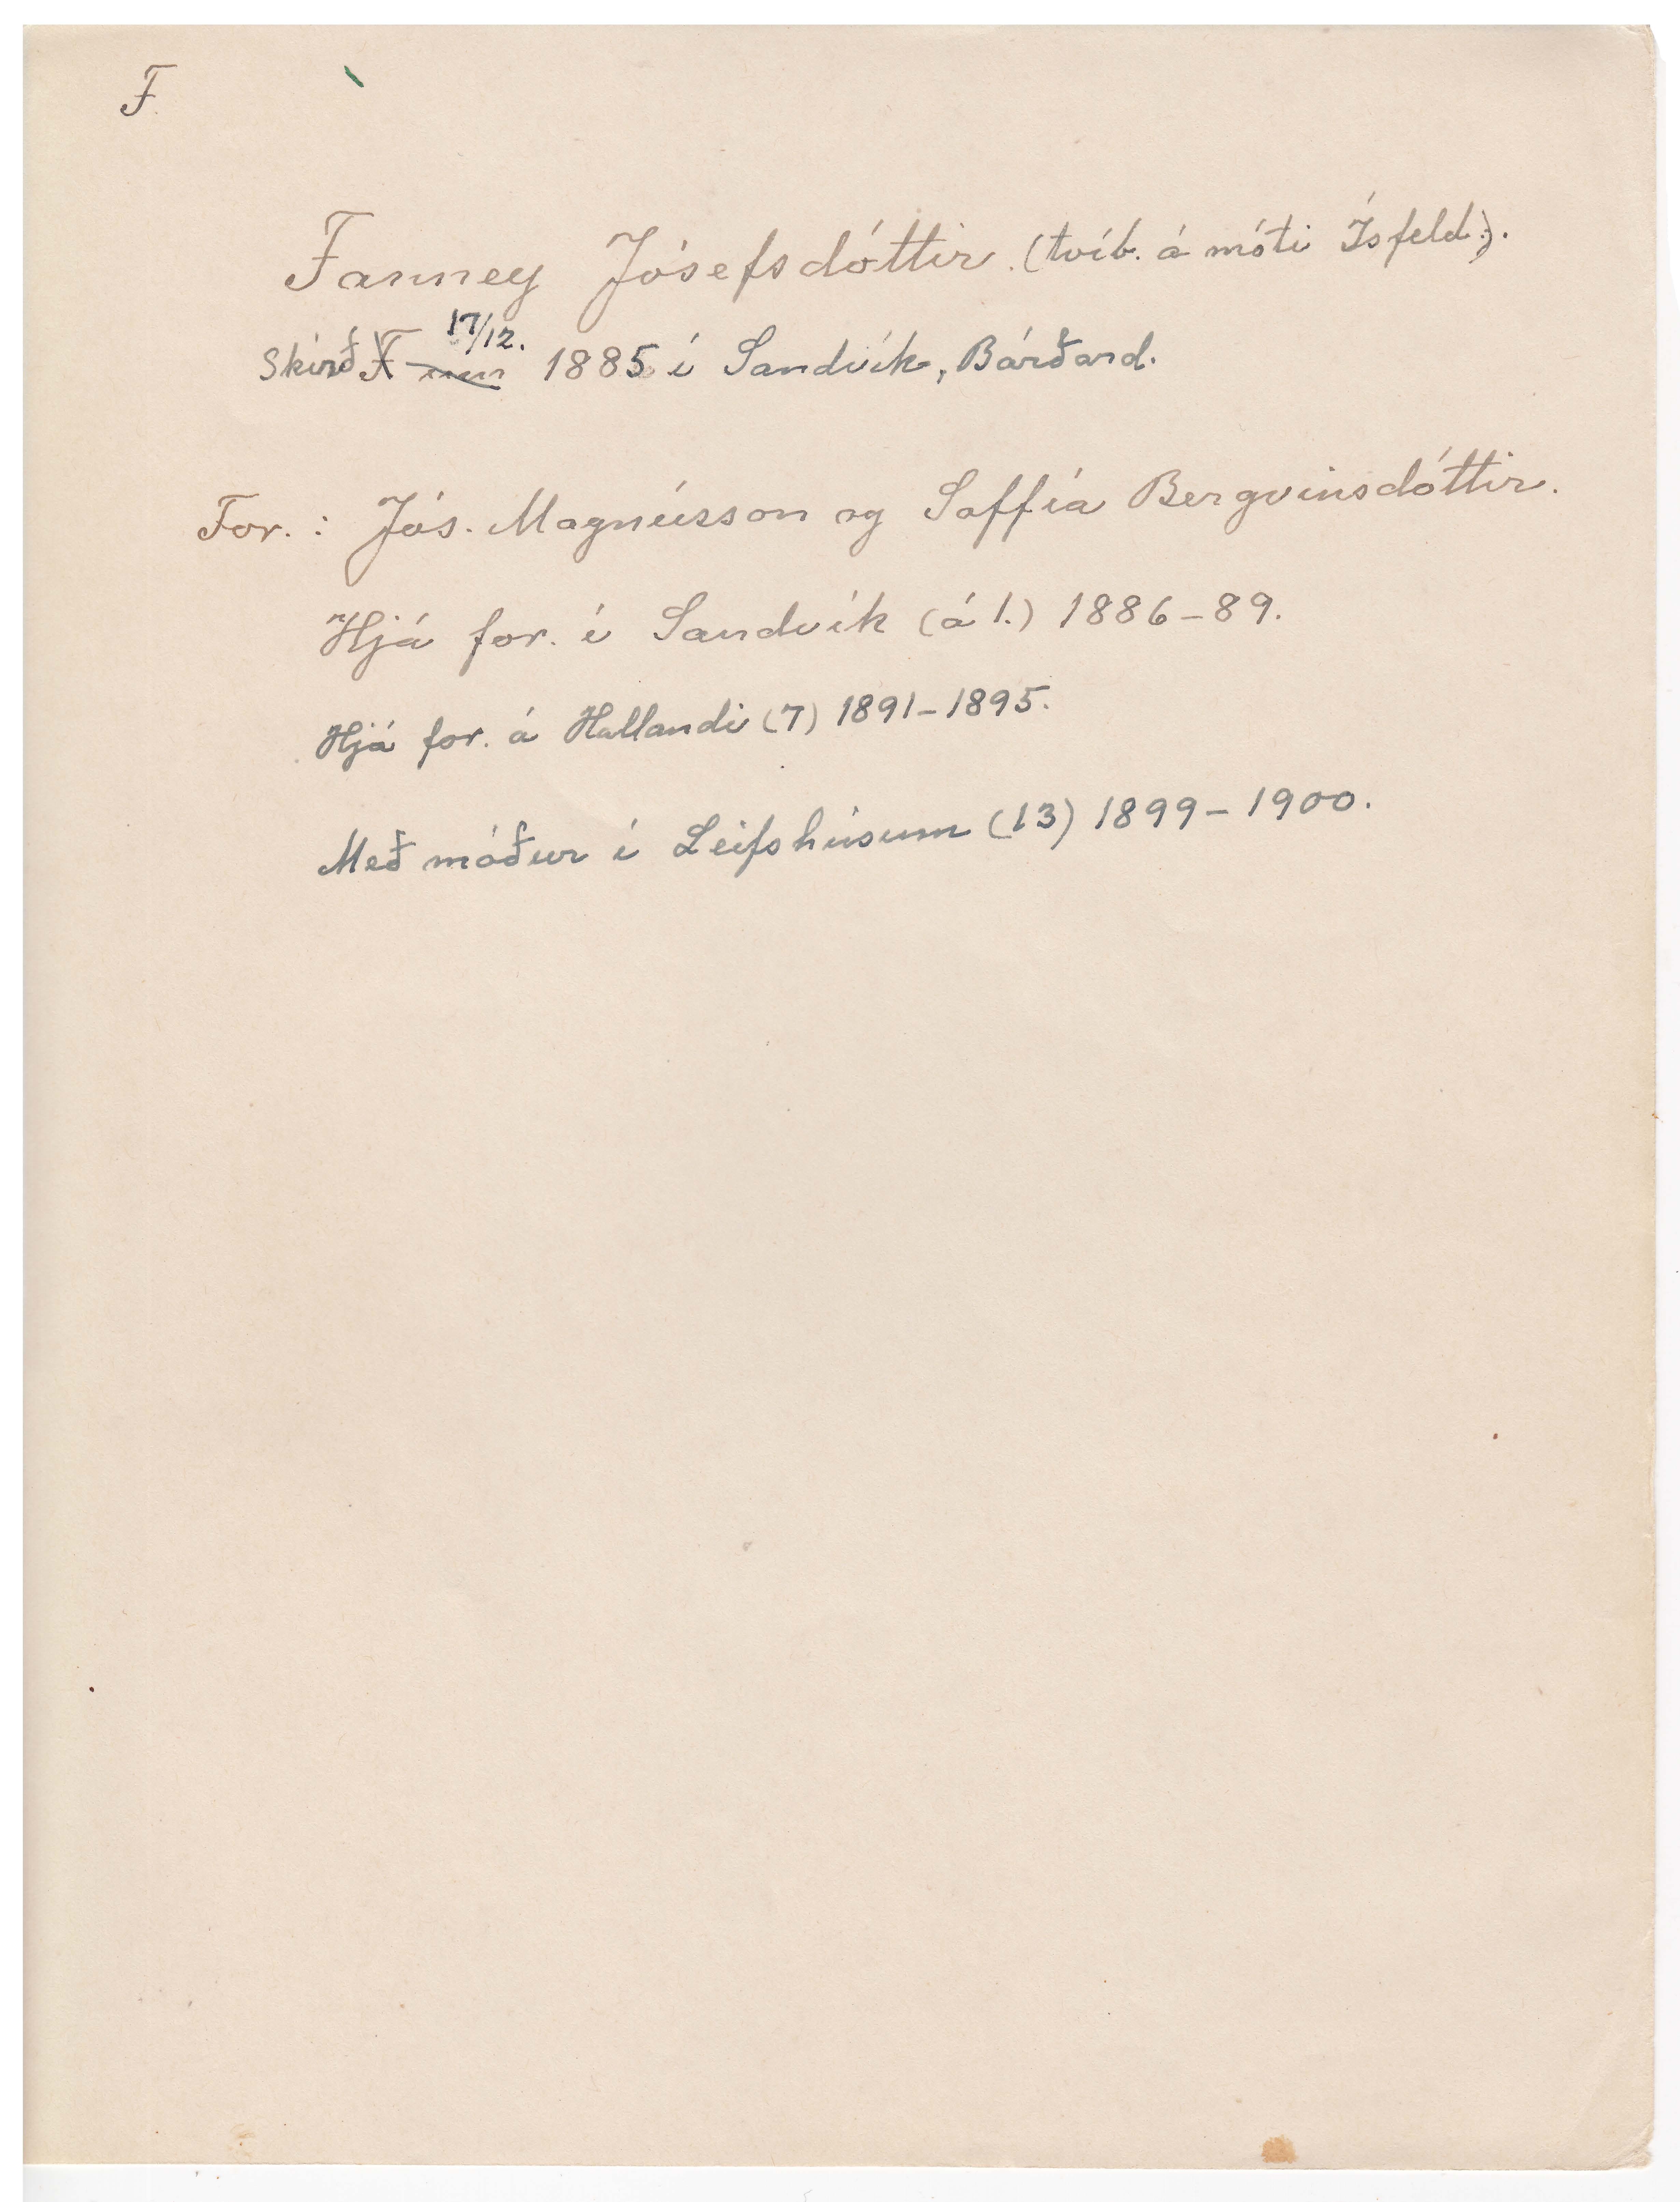 F
Fanney Jósefsdóttir. (tvíb. á móti Ísfeld.).
Skírð 17/12. 1885 í Sandvík, Bárðard.
For.: Jós. Magnússon og Soffía Bergvinsdóttir.
Hjá for. í Sandvík (á 1.) 1886-89.
Hjá for. á Hallandi (7) 1891-1895.
Með móður í Leifshúsum (13) 1899-1900.